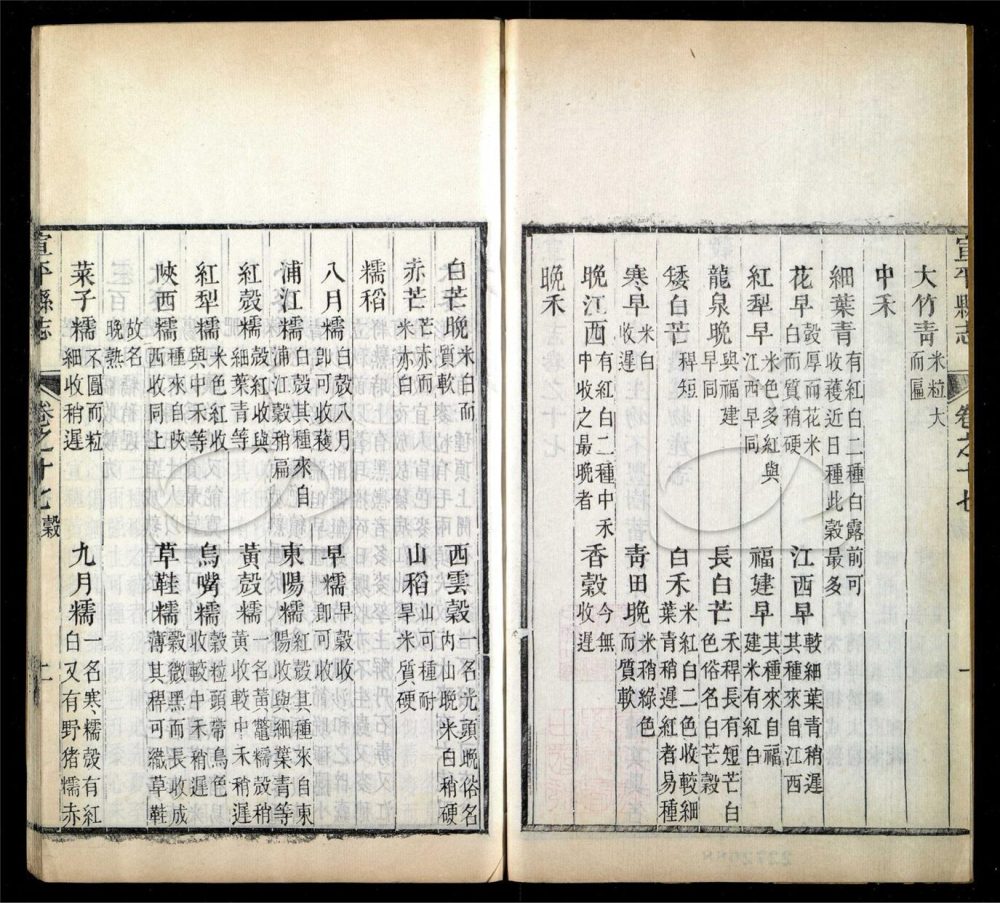 宣平縣志 卷之十七 一
大竹靑米粒大而匾
中禾
細葉青有紅白二種白露前可收穫近日種此穀最多
花早穀厚而花米白而質稍硬 江西早較細葉青稍遲其種來自江西
紅犁早米色多紅與江西早同 福建早其種來自福建米有紅白
龍泉晚與福建早同 長白芒禾稈長有短芒白色俗名白芒穀
矮白芒稈短 白禾米紅白二色收較細葉青稍遲紅者易種
寒早米白收遲 靑田晚米稍綠色而質軟
晚江西有紅白二種中禾中收之最晚者 香穀今無收遲
晚禾
白芒晚米白而質軟 西雲穀一名光頭晚俗名內山晚米白稍硬
赤芒芒赤而米赤白 山稻山可種耐旱米質硬
糯稻
八月糯白穀八月卽可收穫 早糯早穀收卸可收
浦江糯白穀其種來自浦江穀稍扁 東陽糯紅穀其種來自東陽收與細葉青等
紅穀糯穀紅收與細葉青等 黃穀糯一名黃鼈糯穀稍黃收較中禾稍遲
紅犁糯米色紅收與中禾等 烏嘴糯穀粒頭帶烏色收較中禾稍遲
陝西糯種來自陝西收同上 草鞋糯穀微黑而長收成薄其稈可織草鞋
故名晚熟
菜子糯不圓而粒細收稍遲 九月糯一名寒糯穀有紅白又有野猪糯赤
宣平縣志 卷之十七 穀